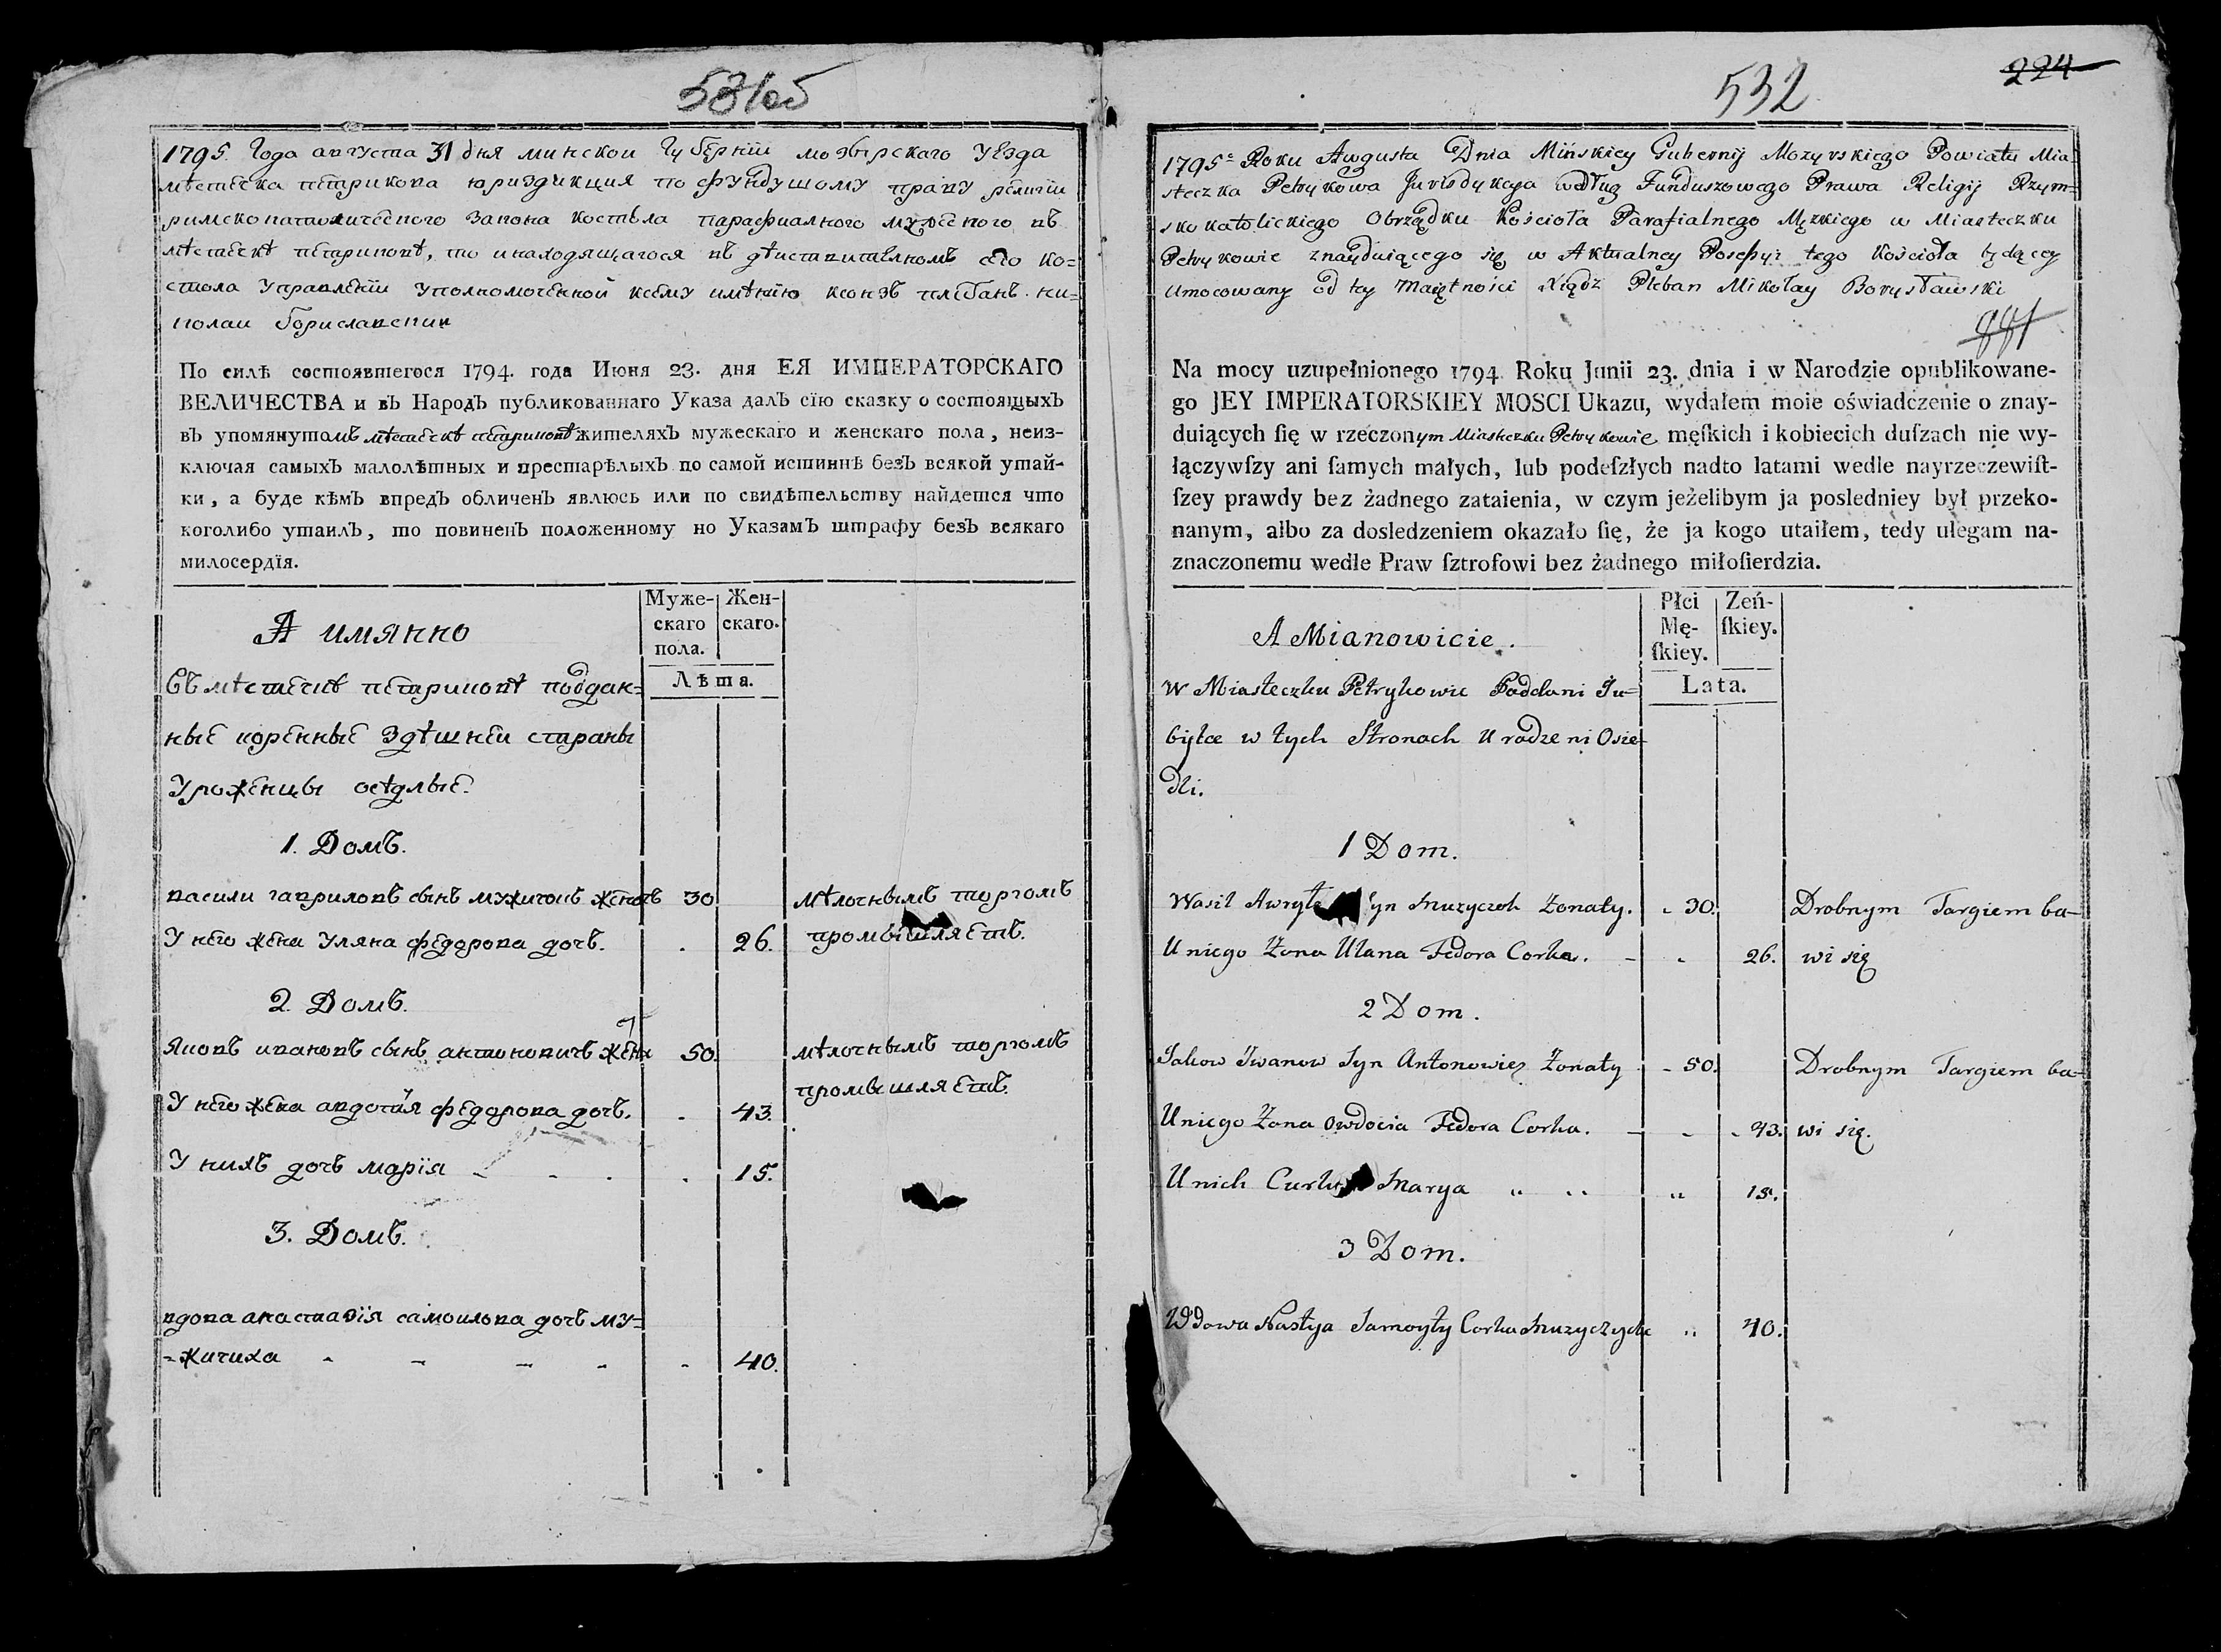 531об
1795. Года августа 31 дня минской Губернїи мозырскаго Уезда
мѣстечка петрикова юриздикция по фундушому праву религїи
римскокатолического закона костѣла парафиалного мужеского въ
мѣстечкѣ петриковѣ, то инаходящагося въ дѣиствителномъ его ко=
стиола Управленїи Уполномоченной ксему имѣнїю ксіонзъ плебанъ ни=
колаи бориславский
По силѣ состоявшегося 1794. года Июня 23. дня ЕЯ ИМПЕРАТОРСКАГО
ВЕЛИЧЕСТВА и въ Народъ публикованнаго Указа далъ сїю сказку о состоящыхъ
въ упомянутомъ мѣстечкѣ петриковѣ жителяхъ мужескаго и женскаго пола, неиз-
ключая самыхъ малолѣтныхъ и престарѣлыхъ по самой истиннѣ безъ всякой утай-
ки, а буде кѣмъ впредъ обличенъ явлюсь или по свидѣтельству найдется что
коголибо утаилъ, то повиненъ положенному по Указамъ штрафу безъ всякаго
милосердїя.
А имянно
Муже-
скаго
пола.
Жен-
скаго.
Лѣта.
Въ мѣстечкѣ петриковѣ поддан=
ные коренные здѣшнеи страны
Уроженцы осѣдлые.
1. Домъ.
васили гавриловъ сынъ мужичокъ женатъ 30 мѣлочнымъ торгомъ
У него жена Уляна федорова дочь. . 26. промышляетъ.
2. Домъ.
яковъ ивановъ сынъ антоновичъ жена 50 мѣлочнымъ торгомъ
промышляетъ.
У него жена авдотїя федорова дочь. . 43.
У нихъ дочь марїя - - . . 15.
3. Домъ.
вдова анастасїя самоилова дочь му=
=жичиха - - - - - 40.
532
224
1795º Roku Awgusta Dnia Mińskiey Gubernij Mozyrskiego Powiatu Mia=
steczka Petrykowa Jurisdykcya według Funduszowego Prawa Religij Rzym=
sko katolickiego Obrządku Kościoła Parafialnego Męzkiego w Miasteczku
Petrykowie znayduiącego się w Aktualney Possessyi tego Kościoła będącey
Umocowany od tey Maiętności Xiądz Pleban Mikołay Borysławski
881
Na mocy uzupełnionego 1794 Roku Junii 23. dnia i w Narodzie opublikowane-
go JEY IMPERATORSKIEY MOSCI Ukazu, wydałem moie oświadczenie o znay-
duiących ſię w rzeczonym Miasteczku Petrykowie męſkich i kobiecich duſzach nie wy-
łączywſzy ani ſamych małych, lub podeſzłych nadto latami wedle nayrzeczewiſt-
ſzey prawdy bez żadnego zataienia, w czym jeżelibym ja posledniey był przeko-
nanym, albo za dosledzeniem okazało ſię, że ja kogo utaiłem, tedy ulegam na-
znaczonemu wedle Praw ſztrofowi bez żadnego miłoſierdzia.
A Mianowicie.
Płci
Mę-
ſkiey.
Zeń-
ſkiey.
Lata.
W Miasteczku Petrykowie Poddani Tu=
bylce w tych Stronach Urodzeni Osie=
dli.
1 Dom.
Wasil Syn Muzyczok Zonaty. - 30. Drobnym Targiem ba=
U niego Zona Ulana Fedora Corka. - - 26. wi się
2 Dom.
Jakow Iwanow Syn Antonowicz Zonaty - 50. Drobnym Targiem ba=
U niego Zona Owdocia Fedora Corka. - - - 43. wi się.
U nich Curka Marya " " " 15.
3 Dom.
Wdowa Nastya Samoyły Corka Muzyczycha " 40.